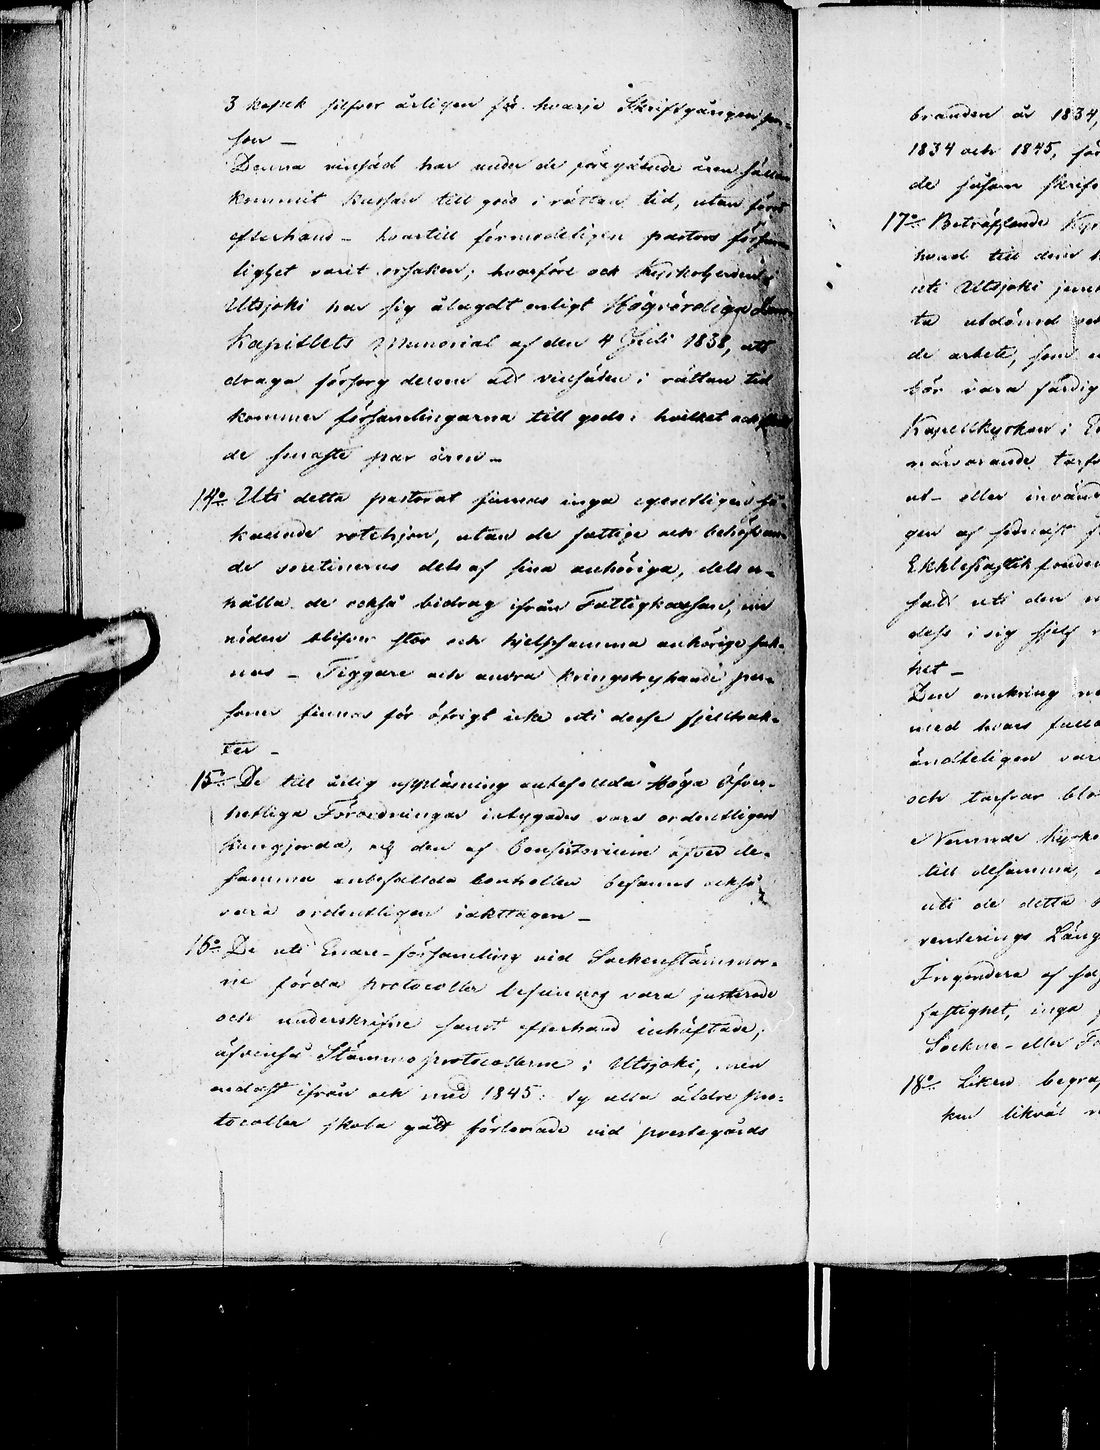 3 kopek silfver årligen för hvarje Skriftgången per-
son –
Denna rissäd har under de föregående åren sällan
kommit kassan till godo i rättan tid, utan först
efterhand – hvartill förmodeligen pastors försum-
lighet varit orsaken; hvarföre och Kyrkoherden i
Utsjoki har sig ålagdt enligt Högvördiga Dom-
Kapitlets Memorial af den 4 Juli 1838, att
draga försorg derom att i rättan tid
kommer församlingarna till godo: hvilket och
de senaste par åren –
14o Uti detta pastorat finnas inga egentligen så
kallade rotehjon, utan de fattige och behöfvan-
de dels af sina anhöriga, dels er-
hålla de också bidrag ifrån Fattigkassan, när
nöden blifver stor och hjelpsamma anhörige sak-
nas – Tiggare och andra kringstrykande per-
soner finnas för öfrigt icke uti desse fjelltrak-
ter –
15o De till årlig uppläsning anbefallda Höga Öfver-
hetliga Förordningar intygades vara ordentligen
kungjorda, och den af Consistorium öfver de-
samma anbefallda Controllen befanns också
vara ordentligen iakttagen –
16o De uti Enare-församling vid Sockenstämmor-
ne förda protocoller befunnos vara justerade
och underskrifne samt efterhand inhäftade;
äfvenså Stämmoprotocollerne i Utsjoki, men
endast ifrån och med 1845: ty alla äldre pro-
tocoller skola gått förlorade vid prestegårds
branden år 1834,
1834 och 1845, för
de såsom
17o Beträffande Kyr
hvad till dem
uti Utsjoki
ta utdömd
de arbete, som
bör vara färdig
Kapellkyrkan i En
närvarande
ut- eller invänd
gen af
Ecklesiastik fonden
uti den
dess i sig sjelf
het –
Den omkring
med hvars
ändteligen var
och
Nemnde Kyrko
till desamma,
uti de detta
renderings Läng
Ingendera af
fastighet, inga
Socken- eller
18o Liken begraf
ken likväl